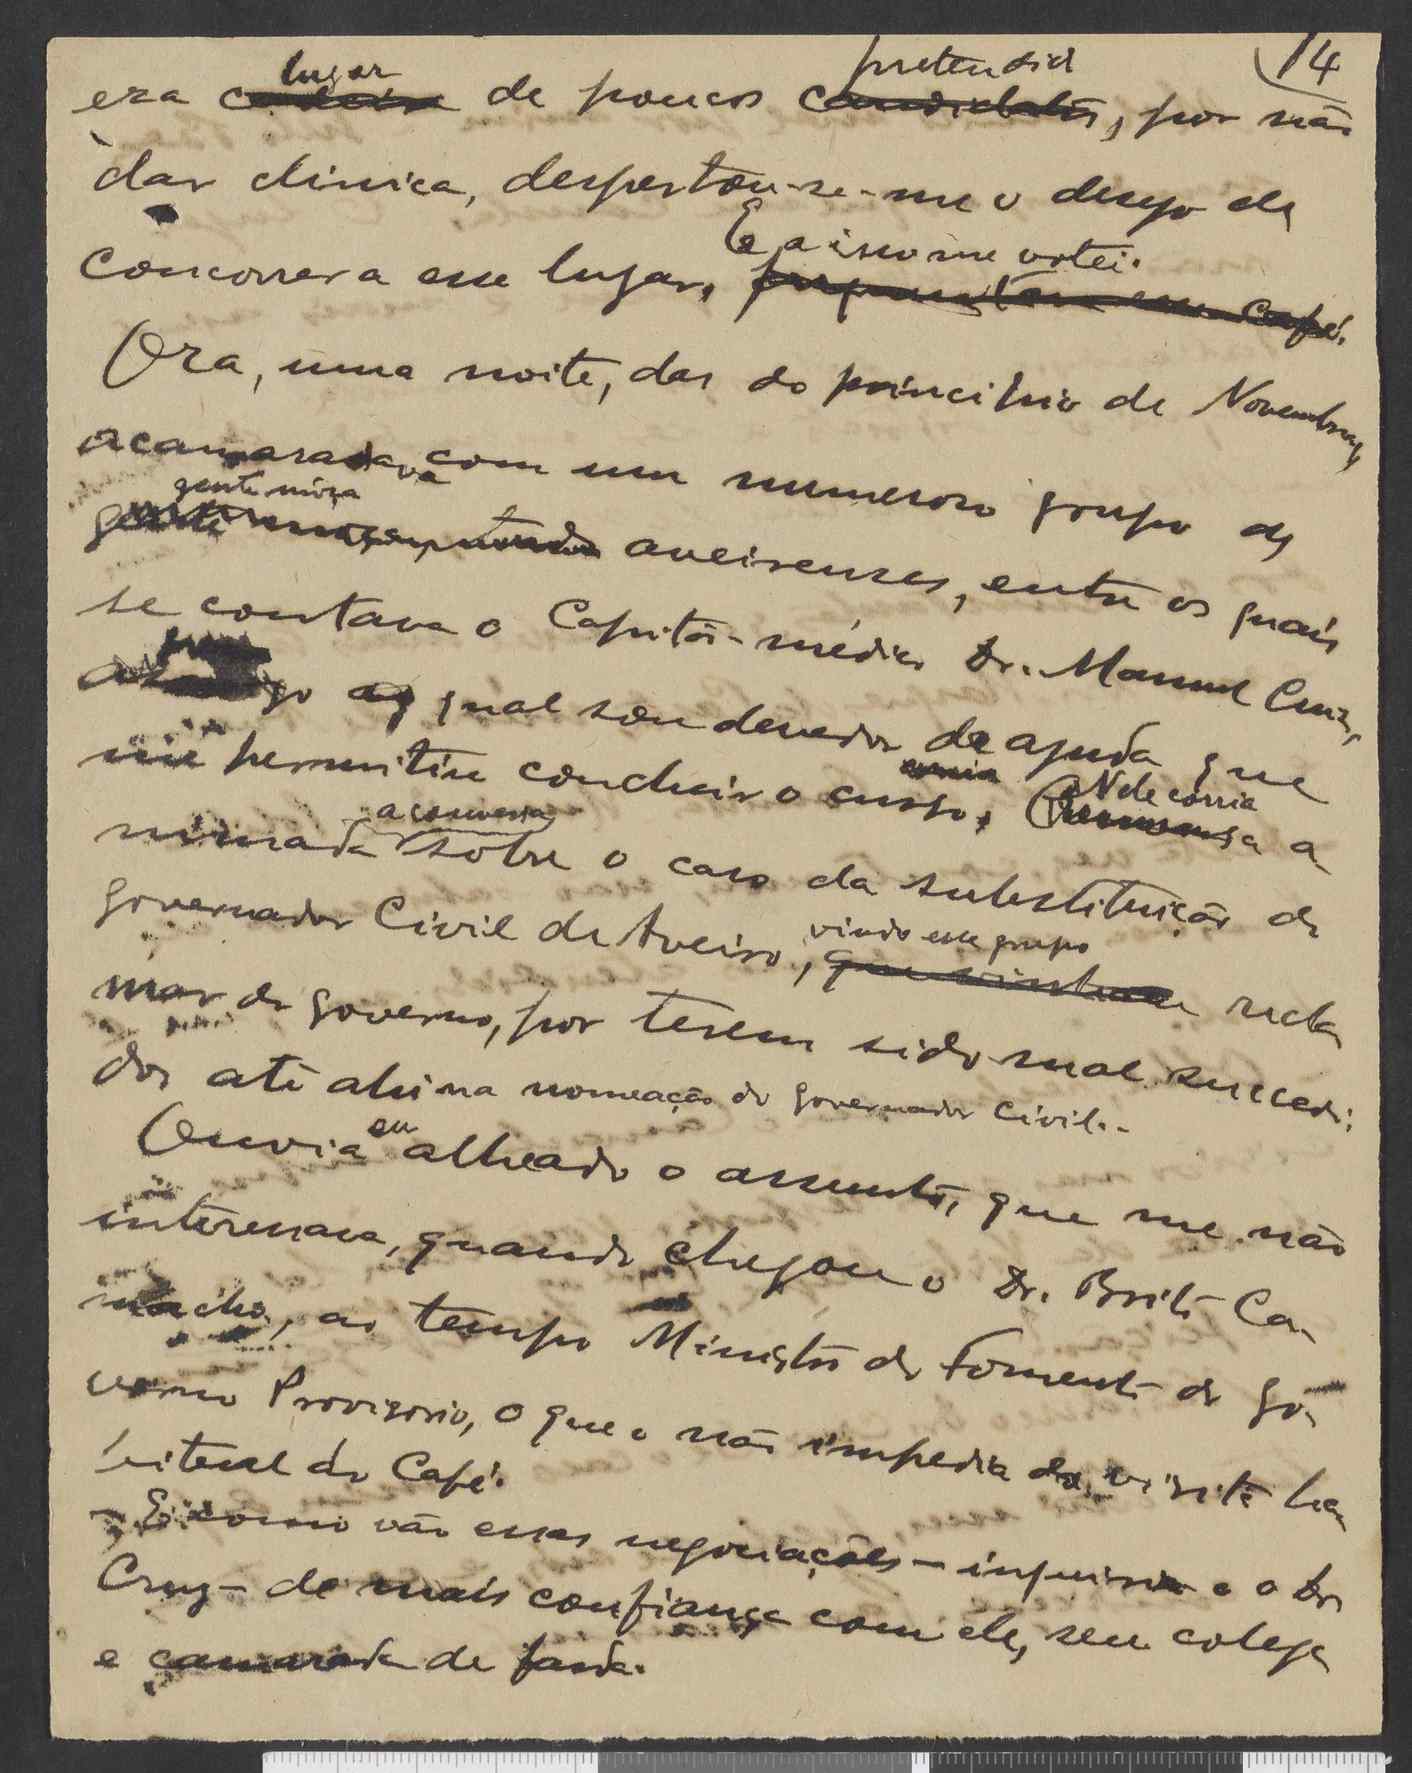 14
lugar pretendid
era cadeira de poucos candidatos, por não
dar clinica, despertou-se-me o desejo de
E a isso me votei.
concorrer a esse lugar, em café.
Ora, uma noite, das do principio de Novembro,
acamaradava com um numeroso grupo de
gente môça
gente moça, aveirenses, entre os quais
se contava o Capitão-médico Dr. Manuel Cruz,
ao qual sou devedor da ajuda que
me permitiu concluir o curso. Nele corria
a conversa
mimada sobre o caso da substituição do
vindo esse grupo
governador Civil de Aveiro, que vinham recla
mar do governo, por terem sido mal succedi-
dos até ahi na nomeação do governador civil.-
eu
Ouvia alheado o assunto, que me não
interessava, quando chegou o Dr. Brito Ca-
macho, ao tempo Ministro do Fomento do Go-
verno Provisorio, o que o não impedia da visita ha
bitual do Café.
- E como vão essas negociações - inquiria e o Dr.
Cruz - de mais confiança com ele, seu colega
e camarada de farda.